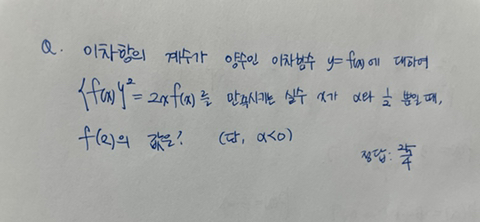 Q. 이차항의 계수가 양수인 이차함수 y=f(x)에 대하여
{f(x)}² = 2x f(x)를 만족시키는 실수 x가 α와 1/2 뿐일 때,
f(2)의 값은? (단, α<0)
정답: 25/4